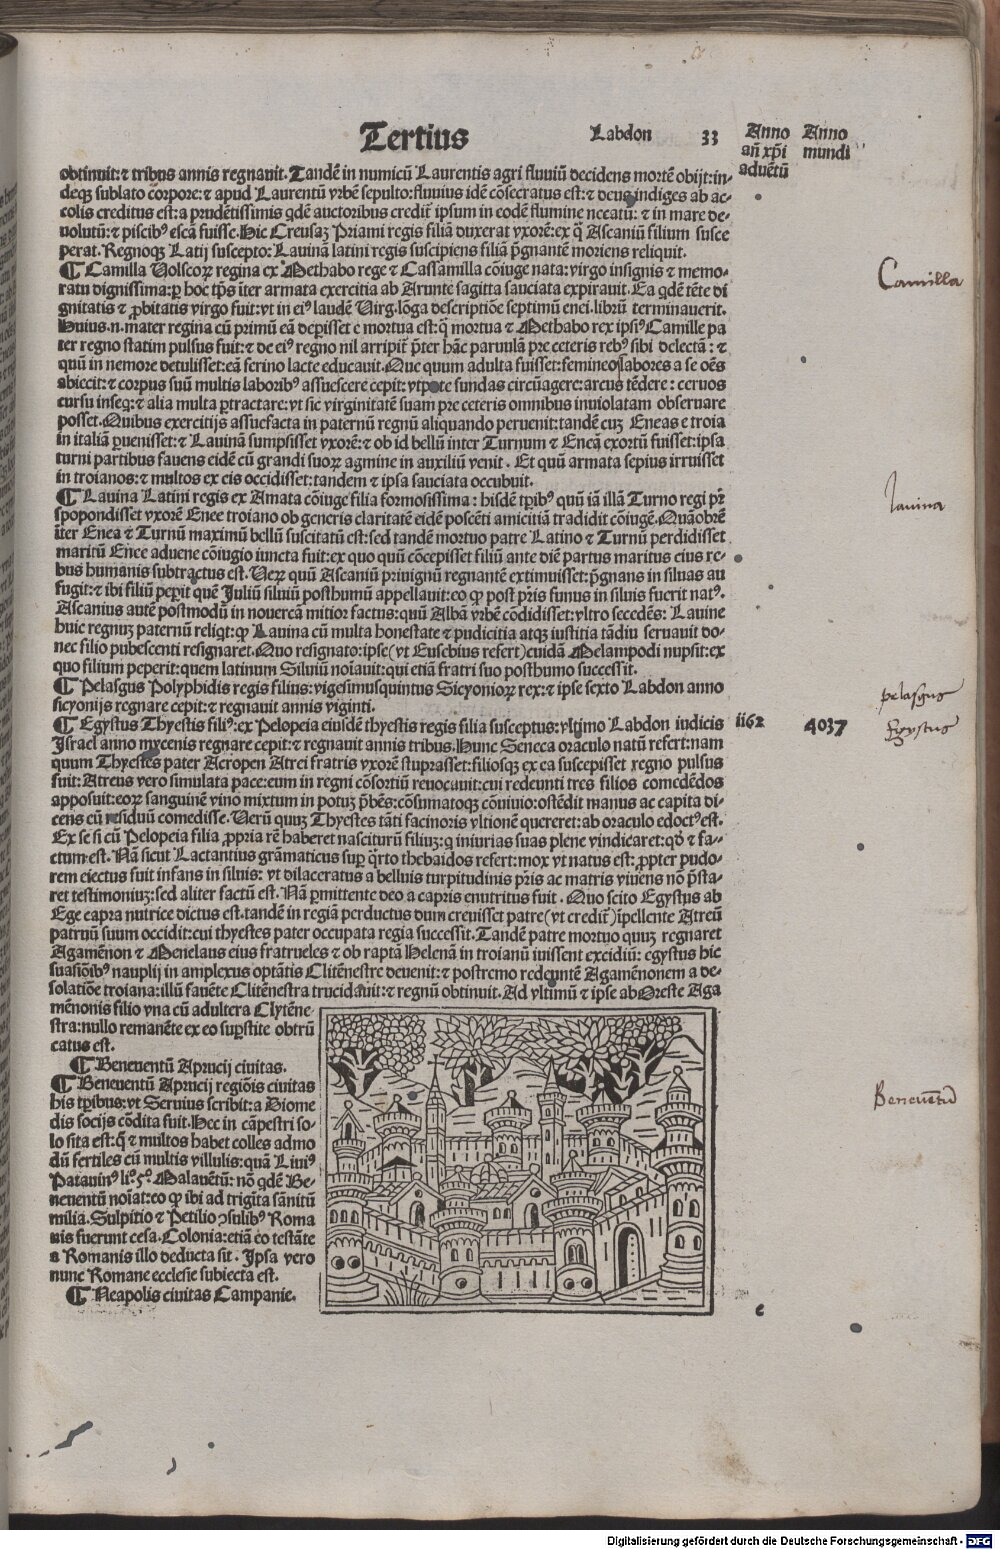 Tertius Labdon 33 Anno Anno
añ xp̄i mundi
aduētū
obtinuit: ⁊ tribus annis regnauit. Tandē in numicū Laurentis agri fluuiū decidens mortē obijt: in-
deqꝫ sublato corpore: ⁊ apud Laurentū vrbē sepulto: fluuius idē cōsecratus est: ⁊ deus indiges ab ac-
colis creditus est: a prudētissimis qdē auctoribus credit᷑ ipsum in eodē flumine necatū: ⁊ in mare de-
uolutū: ⁊ piscibꝰ escā fuisse. Hic Creusaꝫ Priami regis filiā duxerat vxorē: ex q̄ Ascaniū filium susce
perat. Regnoqꝫ Latij suscepto: Lauinā latini regis suscipiens filiā p̄gnantē moriens reliquit.
¶ Camilla Uolscoꝝ regina ex Methabo rege ⁊ Cassamilla cōiuge nata: virgo insignis ⁊ memo-
ratu dignissima: ꝑ hoc tp̄s īter armata exercitia ab Arunte sagitta sauciata expirauit. Ea qdē tēte di
gnitatis ⁊ ꝓbitatis virgo fuit: vt in eiꝰ laudē Virg. lōga descriptiōe septimū enei. librū terminauerit.
Huius .n. mater regina cū primū eā peꝑisset e mortua est: q̄ mortua ⁊ Methabo rex ipsiꝰ Camille pa
ter regno statim pulsus fuit: ⁊ de eiꝰ regno nil arripit᷑ p̄ter hāc paruulā pre ceteris rebꝰ sibi delectā: ⁊
quū in nemore detulisset: eā ferino lacte educauit. Que quum adulta fuisset: femineos labores a se oēs
abiecit: ⁊ corpus suū multis laboribꝰ assuescere cepit: vtpote fundas circūagere: arcus tēdere: ceruos
cursu inseq: ⁊ alia multa ꝑtractare: vt sic virginitatē suam pre ceteris omnibus inuiolatam obseruare
posset. Quibus exercitijs assuefacta in paternū regnū aliquando peruenit: tandē cuꝫ Eneas e troia
in italiā ꝑuenisset: ⁊ Lauinā sumpsisset vxorē: ⁊ ob id bellū inter Turnum ⁊ Eneā exortū fuisset: ipsa
turni partibus fauens eidē cū grandi suoꝝ agmine in auxiliū venit. Et quū armata sepius irruisset
in troianos: ⁊ multos ex eis occidisset: tandem ⁊ ipsa sauciata occubuit.
¶ Lauina Latini regis ex Amata cōiuge filia formosissima: hisdē tp̄ibꝰ quū iā illā Turno regi pr̄
spopondisset vxorē Enee troiano ob generis claritatē eidē poscēti amicitiā tradidit cōiugē. Quāobrē
īter Eneā ⁊ Turnū maximū bellū suscitatū est: sed tandē mortuo patre Latino ⁊ Turnū perdidisset
maritū Enee aduene cōiugio iuncta fuit: ex quo quū cōcepisset filiū ante diē partus maritus eius re-
bus humanis subtractus est. Ueꝝ quū Ascaniū priuignū regnantē extimuisset: p̄gnans in siluas au
fugit: ⁊ ibi filiū peꝑit quē Juliū siluiū posthumū appellauit: eo ꝙ post pr̄is funus in siluis fuerit natꝰ.
Ascanius autē postmodū in nouercā mitior factus: quū Albā vrbē cōdidisset: vltro secedēs: Lauine
huic regnuꝫ paternū reliqt: ꝙ Lauina cū multa honestate ⁊ pudicitia atqꝫ iustitia tādiu seruauit do-
nec filio pubescenti resignaret. Quo resignato: ipse (vt Eusebius refert) cuidā Melampodi nupsit: ex
quo filium peperit: quem latinum Siluiū noīauit: qui etiā fratri suo posthumo successit.
¶ Pelasgus Polyphidis regis filius: vigesimusquintus Sicyonioꝝ rex: ⁊ ipse sexto Labdon anno
sicyonijs regnare cepit: ⁊ regnauit annis viginti.
¶ Egystus Thyestis filiꝰ: ex Pelopeia eiusdē thyestis regis filia susceptus: vltimo Labdon iudicis 1162 4037
Israel anno mycenis regnare cepit: ⁊ regnauit annis tribus. Hunc Seneca oraculo natū refert: nam
quum Thyestes pater Aeropen Atrei fratris vxorē stuprasset: filiosqꝫ ex ea suscepisset regno pulsus
fuit: Atreus vero simulata pace: eum in regni cōsortiū reuocauit: cui redeunti tres filios comedēdos
apposuit: eoꝝ sanguinē vino mixtum in potuꝫ p̄bēs: cōsumatoqꝫ cōuiuio: ostēdit manus ac capita di-
cens eū residuū comedisse. Uerū quuꝫ Thyestes tāti facinoris vltionē quereret: ab oraculo edoctꝰ est.
Ex se si cū Pelopeia filia ꝓpria rē haberet nasciturū filiuꝫ: q iniurias suas plene vindicaret: qd̄ ⁊ fa-
ctum est. Nā sicut Lactantius grāmaticus suꝑ q̄rto thebaidos refert: mox vt natus est: ꝓpter pudo-
rem eiectus fuit infans in siluis: vt dilaceratus a belluis turpitudinis pr̄is ac matris viuens nō p̄sta-
ret testimoniuꝫ: sed aliter factū est. Nā ꝑmittente deo a capris enutritus fuit. Quo scito Egystus ab
Ege capra nutrice dictus est. tandē in regiā perductus dum creuisset patre (vt credit᷑) īpellente Atreū
patruū suum occidit: cui thyestes pater occupata regia successit. Tandē patre mortuo quuꝫ regnaret
Agamēnon ⁊ Menelaus eius fratrueles ⁊ ob raptā Helenā in troianū iuissent excidiū: egystus hic
suasiōibꝰ nauplij in amplexus optātis Clitēnestre deuenit: ⁊ postremo redeuntē Agamēnonem a de-
solatiōe troiana: illū fauēte Clitēnestra trucidauit: ⁊ regnū obtinuit. Ad vltimū ⁊ ipse ab Oreste Aga
mēnonis filio vna cū adultera Clytēne
stra: nullo remanēte ex eo suꝑstite obtrū
catus est.
¶ Beneuentū Aprucij ciuitas.
¶ Beneuentū Aprucij regiōis ciuitas
his tp̄ibus: vt Seruius scribit: a Diome
dis socijs cōdita fuit. Hec in cāpestri so-
lo sita est: q̄ ⁊ multos habet colles admo
dū fertiles cū multis villulis: quā Liuiꝰ
Patauinꝰ li°. 5°. Malauētū: nō qdē Be-
neuentū noīat: eo ꝙ ibi ad trigīta sānitū
milia. Sulpitio ⁊ Petilio ↄsulibꝰ Roma
nis fuerunt cesa. Colonia: etiā eo testāte
a Romanis illo deducta sit. Ipsa vero
nunc Romane ecclesie subiecta est.
¶ Neapolis ciuitas Campanie.
e
Camilla
lauina
pelasgus
Egystus
Beneuētū
Digitalisierung gefördert durch die Deutsche Forschungsgemeinschaft - DFG